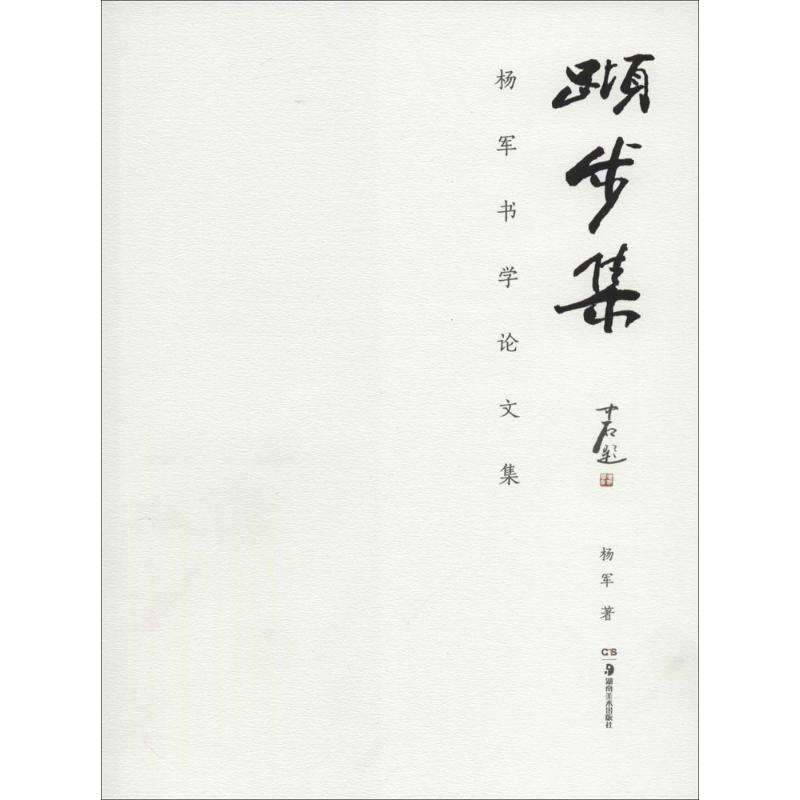 蹞步集
杨军书学论文集
中石题
杨军著
CTS
湖南美术出版社